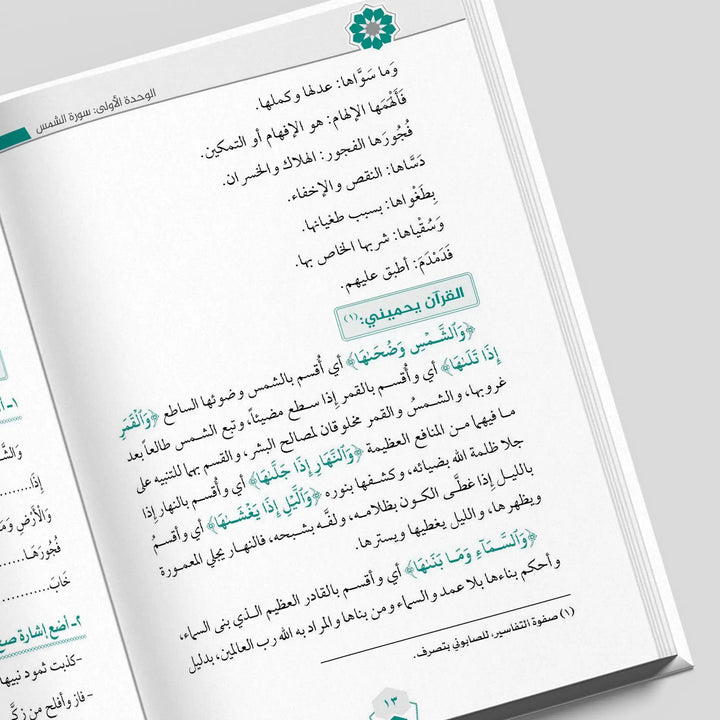 الوحدة الأولى: سورة الشمس
وَما سَوَّاها: عدلها وكملها.
فَأَلْهَمَها الإلهام: هو الإفهام أو التمكين.
فُجُورَها الفجور: الهلاك والخسران.
دَسَّاها: النقص والإخفاء.
بِطَغْواها: بسبب طغيانها.
وَسُقْياها: شربها الخاص بها.
فَدَمْدَمَ: أطبق عليهم.
القرآن يحميني: (١)
﴿وَٱلشَّمْسِ وَضُحَىٰهَا﴾ أي أُقسم بالشمس وضوئها الساطع ﴿وَٱلْقَمَرِ
إِذَا تَلَىٰهَا﴾ أي وأُقسم بالقمر إِذا سطع مضيئاً، وتبع الشمس طالعاً بعد
غروبها، والشمسُ والقمر مخلوقان لمصالح البشر، والقسم بهما للتنبيه على
ما فيهما من المنافع العظيمة ﴿وَٱلنَّهَارِ إِذَا جَلَّىٰهَا﴾ أي وأُقسم بالنهار إِذا
جلا ظلمة الله بضيائه، وكشفها بنوره ﴿وَٱلَّيْلِ إِذَا يَغْشَىٰهَا﴾ أي وأقسمُ
بالليل إِذا غطَّى الكون بظلامه، ولفَّه بشبحه، فالنهار يجلي المعمورة
ويظهرها، والليل يغطيها ويسترها.
﴿وَٱلسَّمَآءِ وَمَا بَنَىٰهَا﴾ أي وأقسم بالقادر العظيم الذي بنى السماء،
وأحكم بناءها بلا عمد والسماء ومن بناها والمراد به الله رب العالمين، بدليل
(١) صفوة التفاسير، للصابوني بتصرف.
١٣
١- أ
وَالشَّ
إِذَا..........
وَالْأَرْضِ وَمَ
فُجُورَهَـا...
خَابَ..........
٢- أضع إشارة صح
-كذبت ثمود نبيها
- فاز وأفلح من زكَّـ